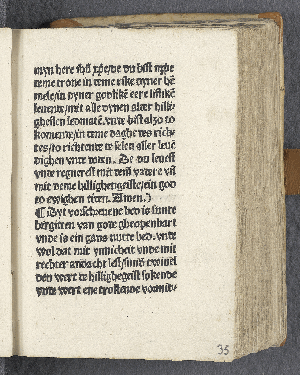 myn here ihũ xp̃e/de du bist
teme trone in teme rike dyner hē
mele/in dyner godliken ere
leuent/met alle dynen alder hilli-
ghesten ledematē. vnde bist also to
komende/in teme daghe des rich-
tes/to richtende te selen aller leuē
dighen vnde doden. De du leuest
vnde regnerest mit dem vader
mit deme hillighengeiste/ein god
to ewighen tiden. Amen.
Dyt vorschreuene bed is sunte
bergitten van gode gheopenbart
vnde is ein gans nutte bed. vnde
wol dat mit ynnicheit vnde mit
rechter andacht lest/sund' twiuel
den wert de hillighegeist sokende
vnde wert ene trostende vormid-
35